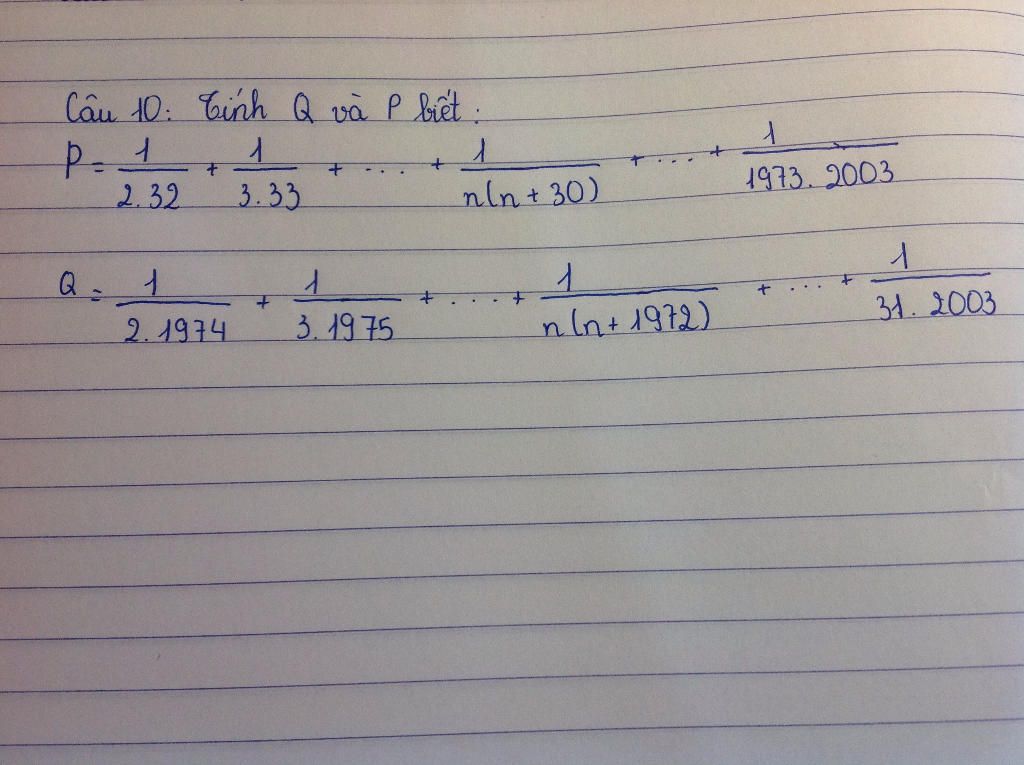 Câu 10: Tính Q và P biết:
P = 1/2.32 + 1/3.33 + .... + 1/n(n+30) + ... + 1/1973.2003
Q = 1/2.1974 + 1/3.1975 + .... + 1/n(n+1972) + ... + 1/31.2003